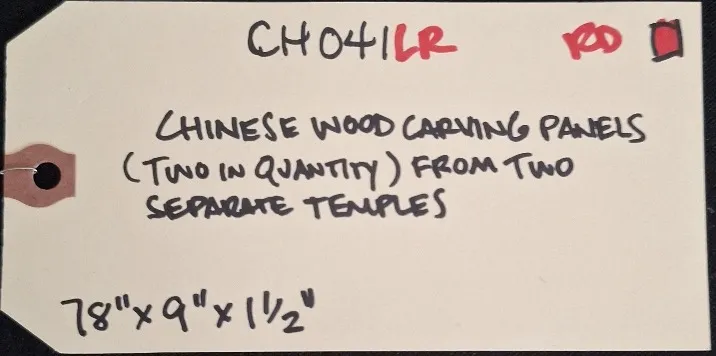 CH041LR RD
CHINESE WOOD CARVING PANELS
(TWO IN QUANTITY) FROM TWO
SEPARATE TEMPLES
78" x 9" x 1 1/2"